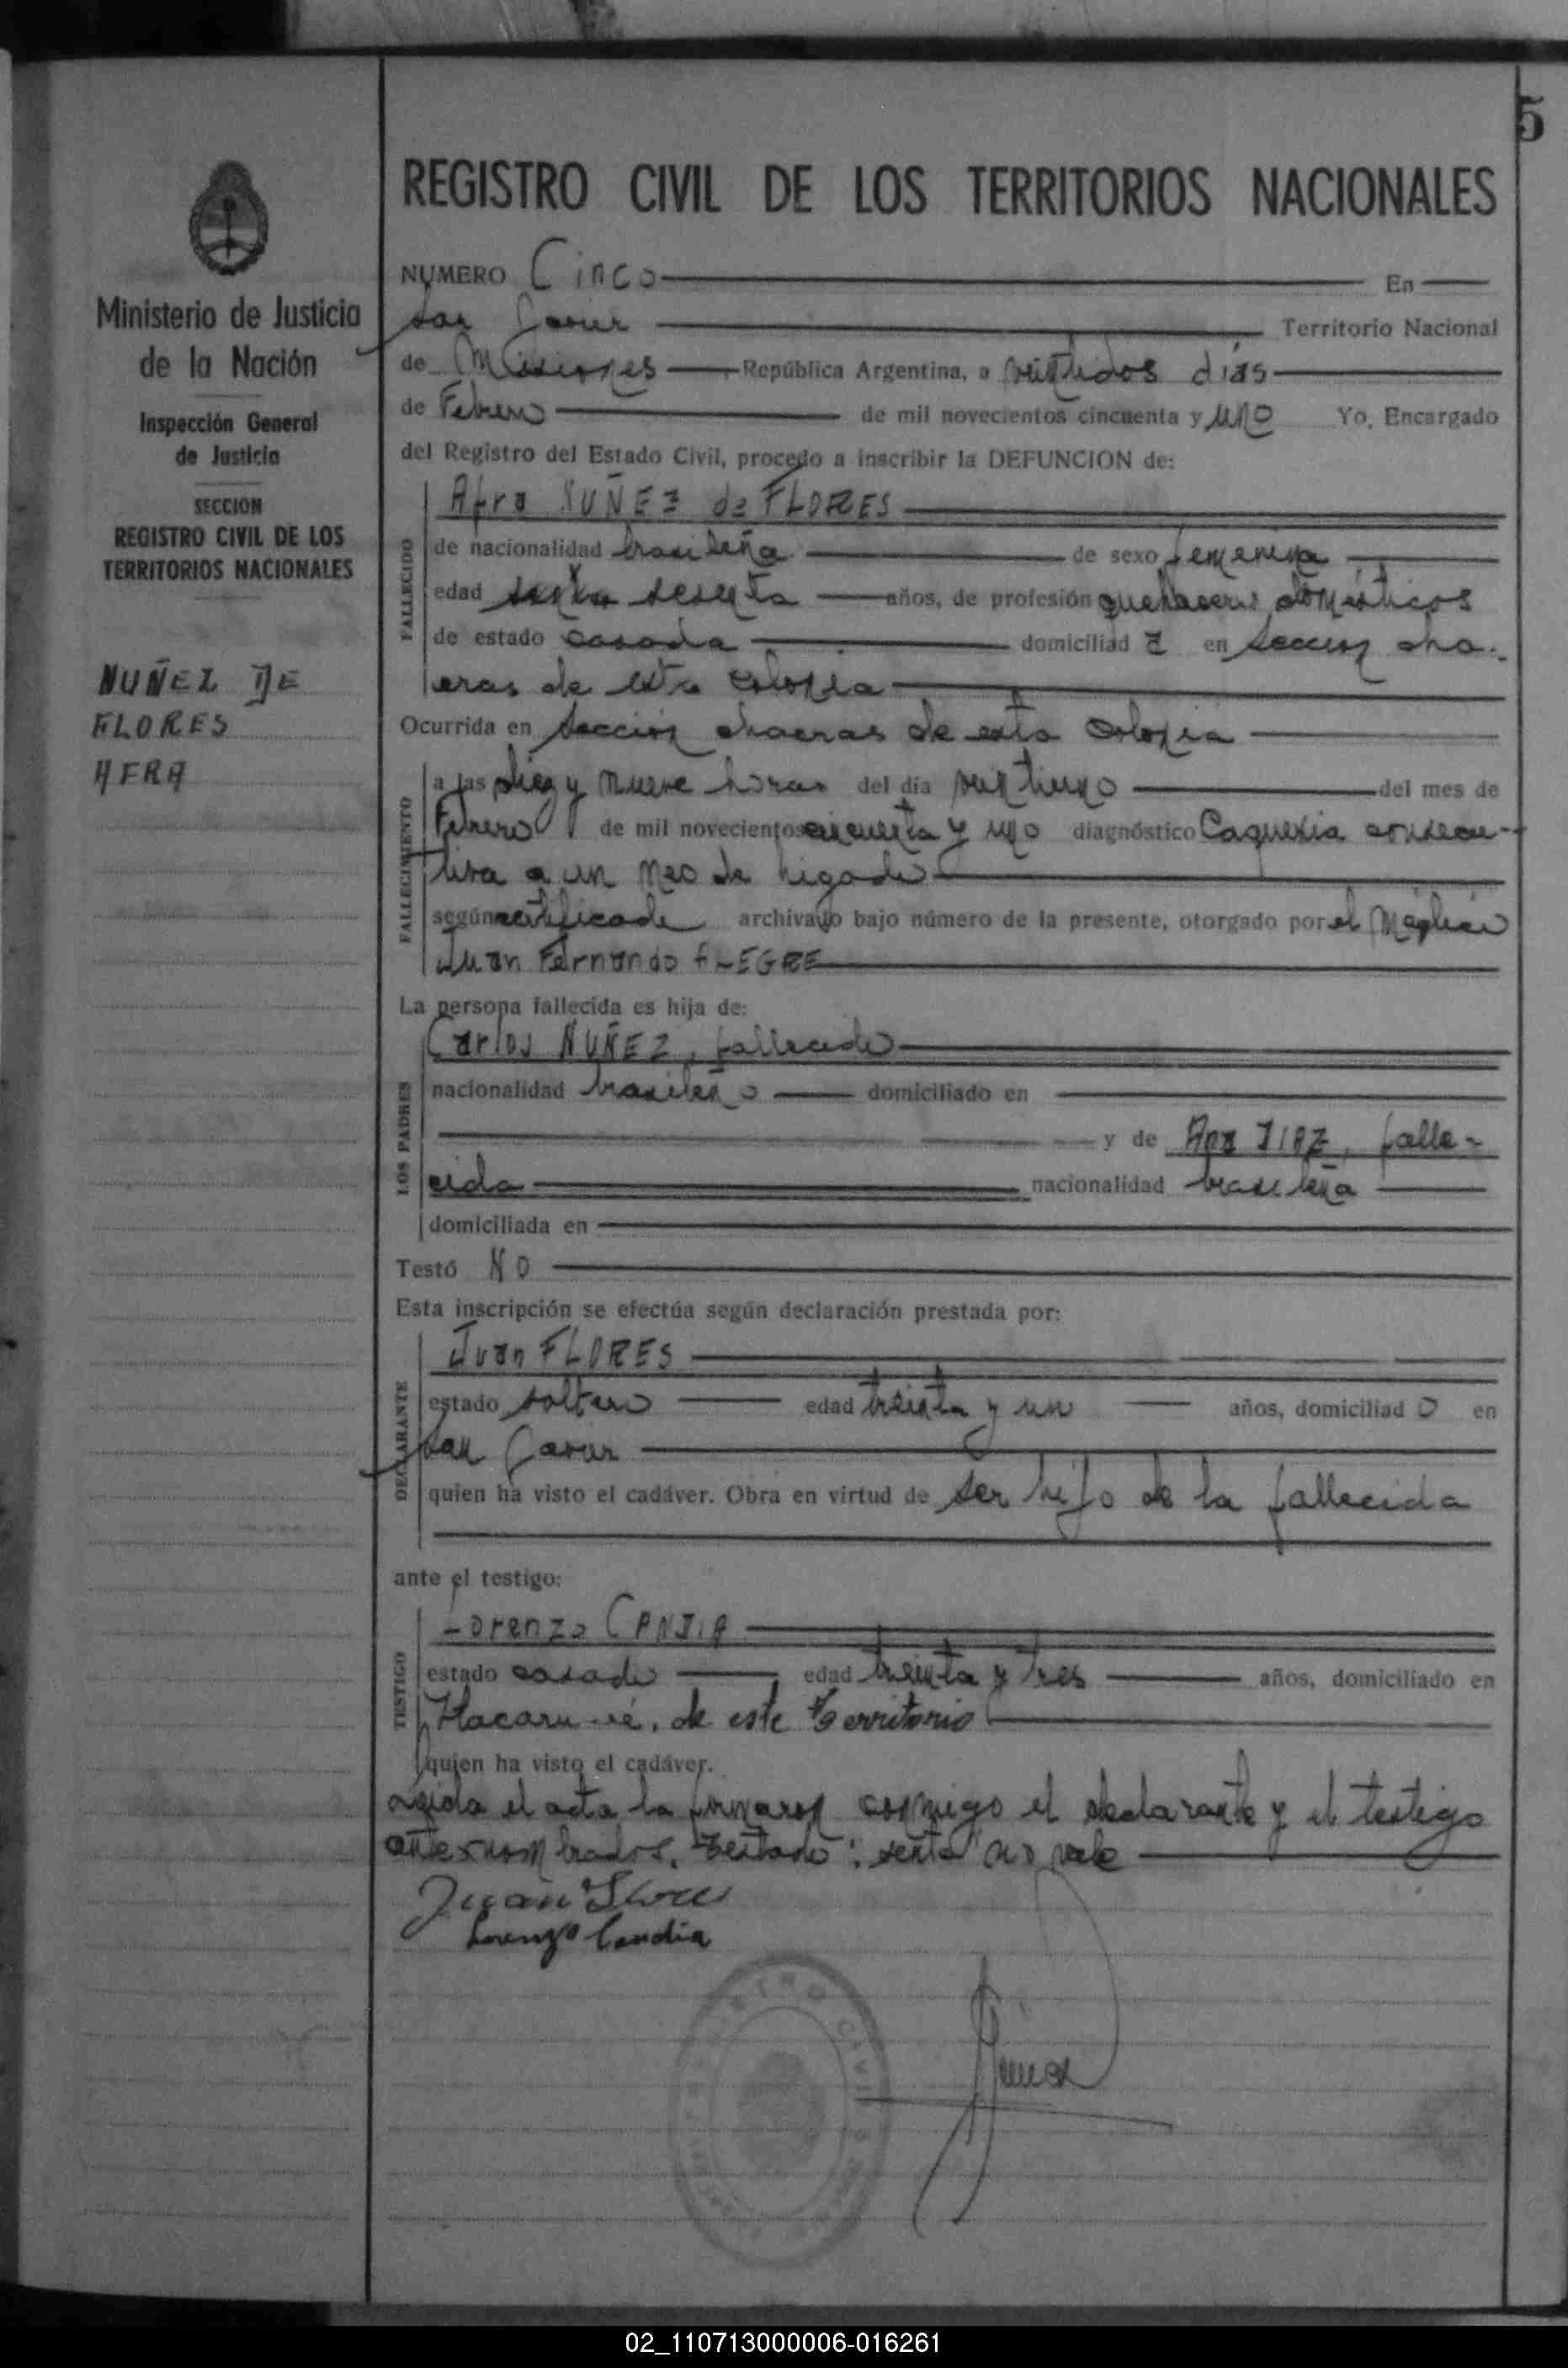 5
REGISTRO CIVIL DE LOS TERRITORIOS NACIONALES
Ministerio de Justicia
de la Nación
Inspección General
de Justicia
SECCION
REGISTRO CIVIL DE LOS
TERRITORIOS NACIONALES
NUÑEZ DE
FLORES
AFRA
NUMERO Cinco En
San Javier Territorio Nacional
de Misiones República Argentina, a veintidos días
de Febrero de mil novecientos cincuenta y uno Yo, Encargado
del Registro del Estado Civil, procedo a inscribir la DEFUNCION de:
Afra NUÑEZ de FLORES
FALLECIDO
de nacionalidad brasileña de sexo femenina
edad senta sesenta años, de profesión quehaceres domésticos
de estado casada domiciliad a en Sección cha-
cras de esta colonia
Ocurrida en Sección chacras de esta colonia
FALLECIMIENTO
a las diez y nueve horas del día veintiuno del mes de
Febrero de mil novecientos cincuenta y uno diagnóstico Caquexia consecu-
tiva a un neo de higado
según certificado archivado bajo número de la presente, otorgado por el Médico
Juan Fernando ALEGRE
La persona fallecida es hija de:
Carlos NUÑEZ, fallecido
LOS PADRES
nacionalidad brasileño domiciliado en
y de Ana DIAZ, falle-
cida nacionalidad brasileña
domiciliada en
Testó NO
Esta inscripción se efectúa según declaración prestada por:
Juan FLORES
DECLARANTE
estado soltero edad treinta y un años, domiciliad o en
San Javier
quien ha visto el cadáver. Obra en virtud de ser hijo de la fallecida
ante el testigo:
Lorenzo CANDIA
TESTIGO
estado casado edad treinta y tres años, domiciliado en
Itacaru-ré, de este territorio
quien ha visto el cadáver.
Leida el acta la firmaron conmigo el declarante y el testigo
antes nombrados. Testado: "senta" no vale
Juan Flores
Lorenzo Candia
02_110713000006-016261